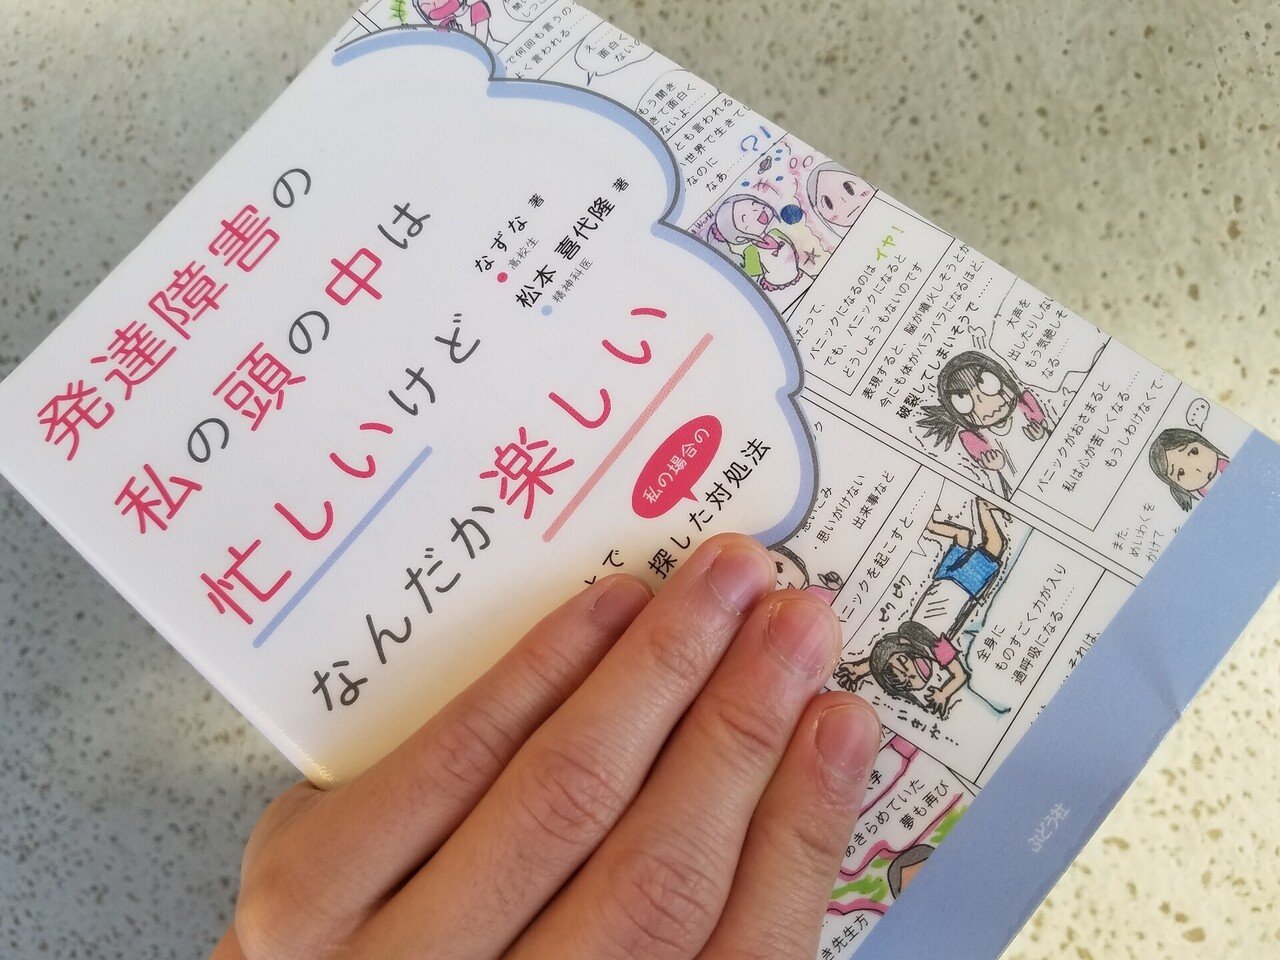 発達障害の
私の頭の中は
忙しいけど
なんだか楽しい
なずな 著
高校生
松本 喜代隆 著
精神科医
私の場合の
探した対処法
とで
で何回も言うの
よく言われる…
え……
面白く
ないの
もう聞き
きて面白く
ないよ……
とも言われる
世界で生きてい
なのに
なぁ……
?!
パニックになるのはイヤ!
でも、パニックになると
どうしようもないのです
表現すると、脳が噴火しそうとか
今にも体がバラバラになるほど、
破裂してしまいそうで……
大声を
出したりしない
もう気絶しそ
なる……
パニックがおさまると
私は心が苦しくなる……
もうしわけなくて…
また、
めいわくを
かけて
・思いがけない
出来事など
パニックを起こすと……
ピク
ピク
全身に
ものすごく力が入り
過呼吸になる……
それは、
あきらめていた
夢も再び
き先生方
ぶどう社